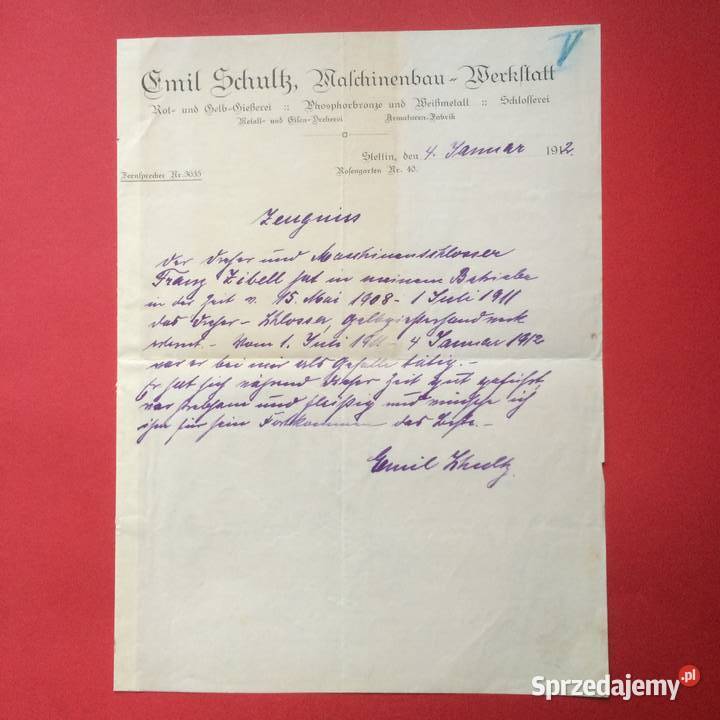 Emil Schultz, Maschinenbau-Werkstatt
Rot- und Gelb-Gießerei :: Phosphorbronze und Weißmetall :: Schlosserei
Metall- und Eisen-Dreherei Armaturen-Fabrik
Stettin, den 4. Januar 1912.
Fernsprecher Nr. 3035
Rosengarten Nr. 40.
Zeugniss
Der Dreher und Maschinenschlosser
Franz Zibell hat in meinem Betriebe
in der Zeit v. 15. Mai 1908 - 1 Juli 1911
das Dreher - Schlosser, Gelbgießerhandwerk
erlernt. - Vom 1. Juli 1911 - 4 Januar 1912
war er bei mir als Geselle tätig. -
Er hat sich während dieser Zeit gut geführt,
war strebsam und fleißig und wünsche ich
ihm für sein Fortkommen das Beste. -
Emil Schultz.
Sprzedajemy.pl